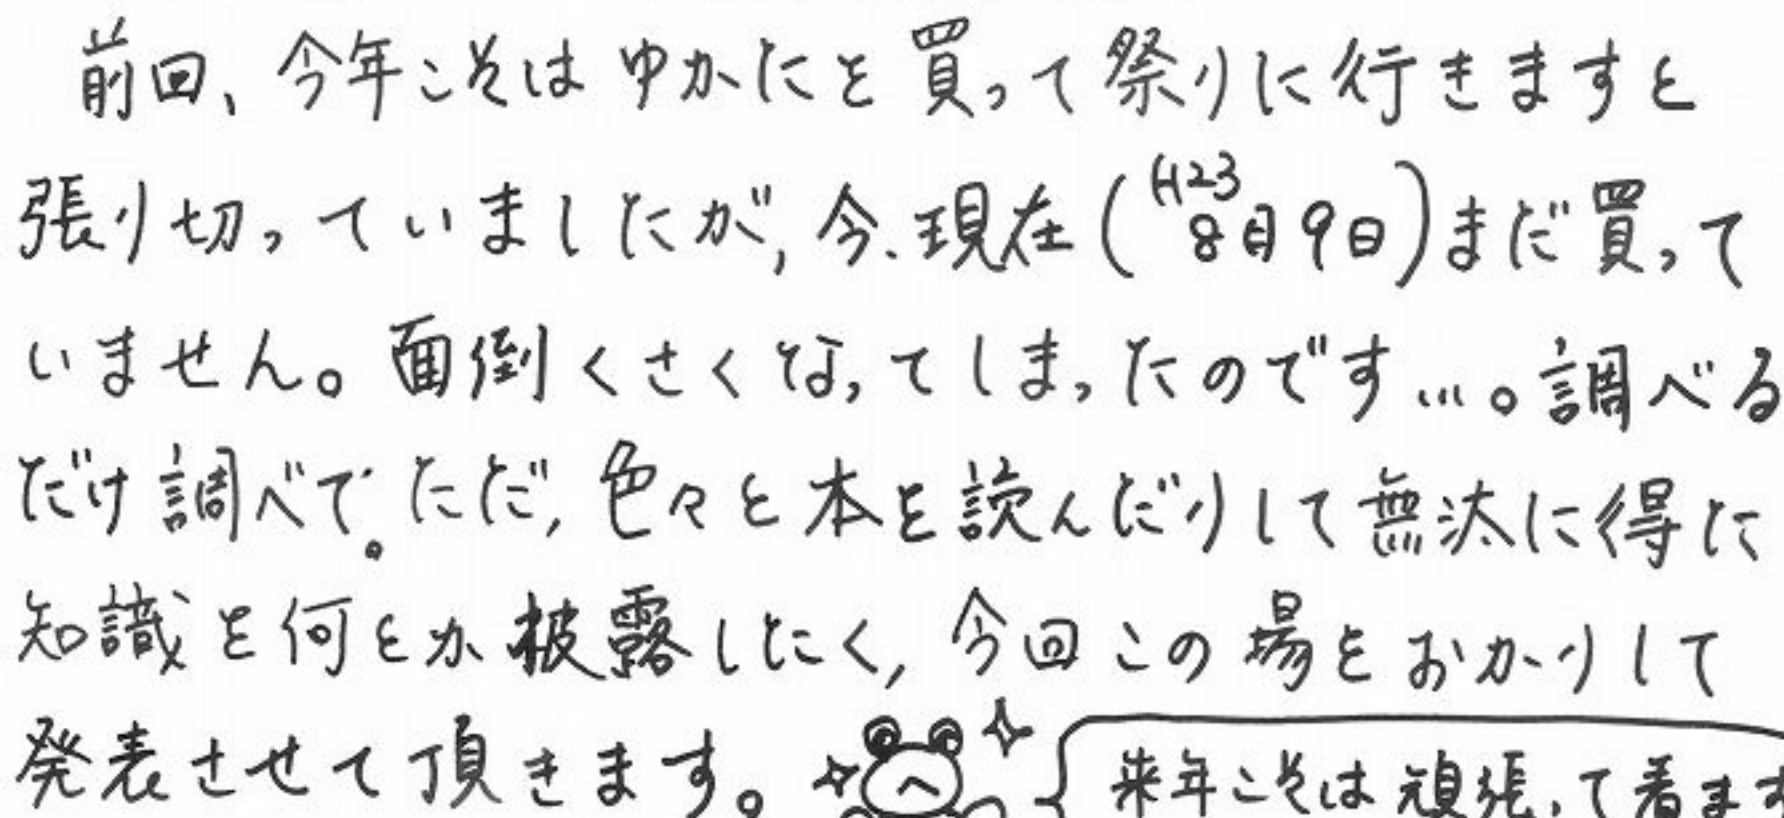 前回、今年こそはゆかたを買って祭りに行きますと
張り切っていましたが、今、現在(H23 8月9日)まだ買って
いません。面倒くさくなってしまったのです…。調べる
だけ調べて。ただ、色々と本を読んだりして無汰に得た
知識を何とか披露したく、今回この場をおかりして
発表させて頂きます。
来年こそは頑張って着ます